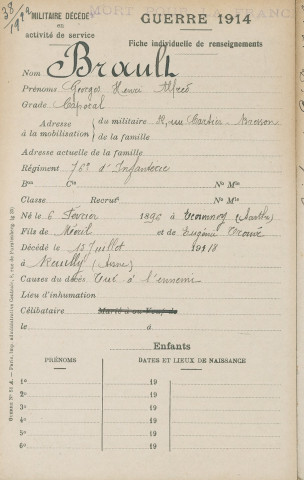 38/1922
MORT POUR LA FRANCE
MILITAIRE DÉCÉDÉ
en
activité de service
GUERRE 1914
Fiche individuelle de renseignements
Nom Brault
Prénoms Georges Henri Alfred
Grade Caporal
Adresse à la mobilisation du militaire 12, rue Cartier Bresson
de la famille
Adresse actuelle de la famille
Régiment 76e d'Infanterie
Bon Cie No Mle
Classe Recrut No Mle
Né le 6 Février 1896 à (Sarthe)
Fils de et de Eugénie
Décédé le 15 Juillet 1918
à Neuilly (Marne)
Causes du décès Tué à l'ennemi
Lieu d'inhumation
Célibataire Marié à ou Veuf de
le à
Enfants
PRÉNOMS DATES ET LIEUX DE NAISSANCE
1o 19
2o 19
3o 19
4o 19
5o 19
6o 19